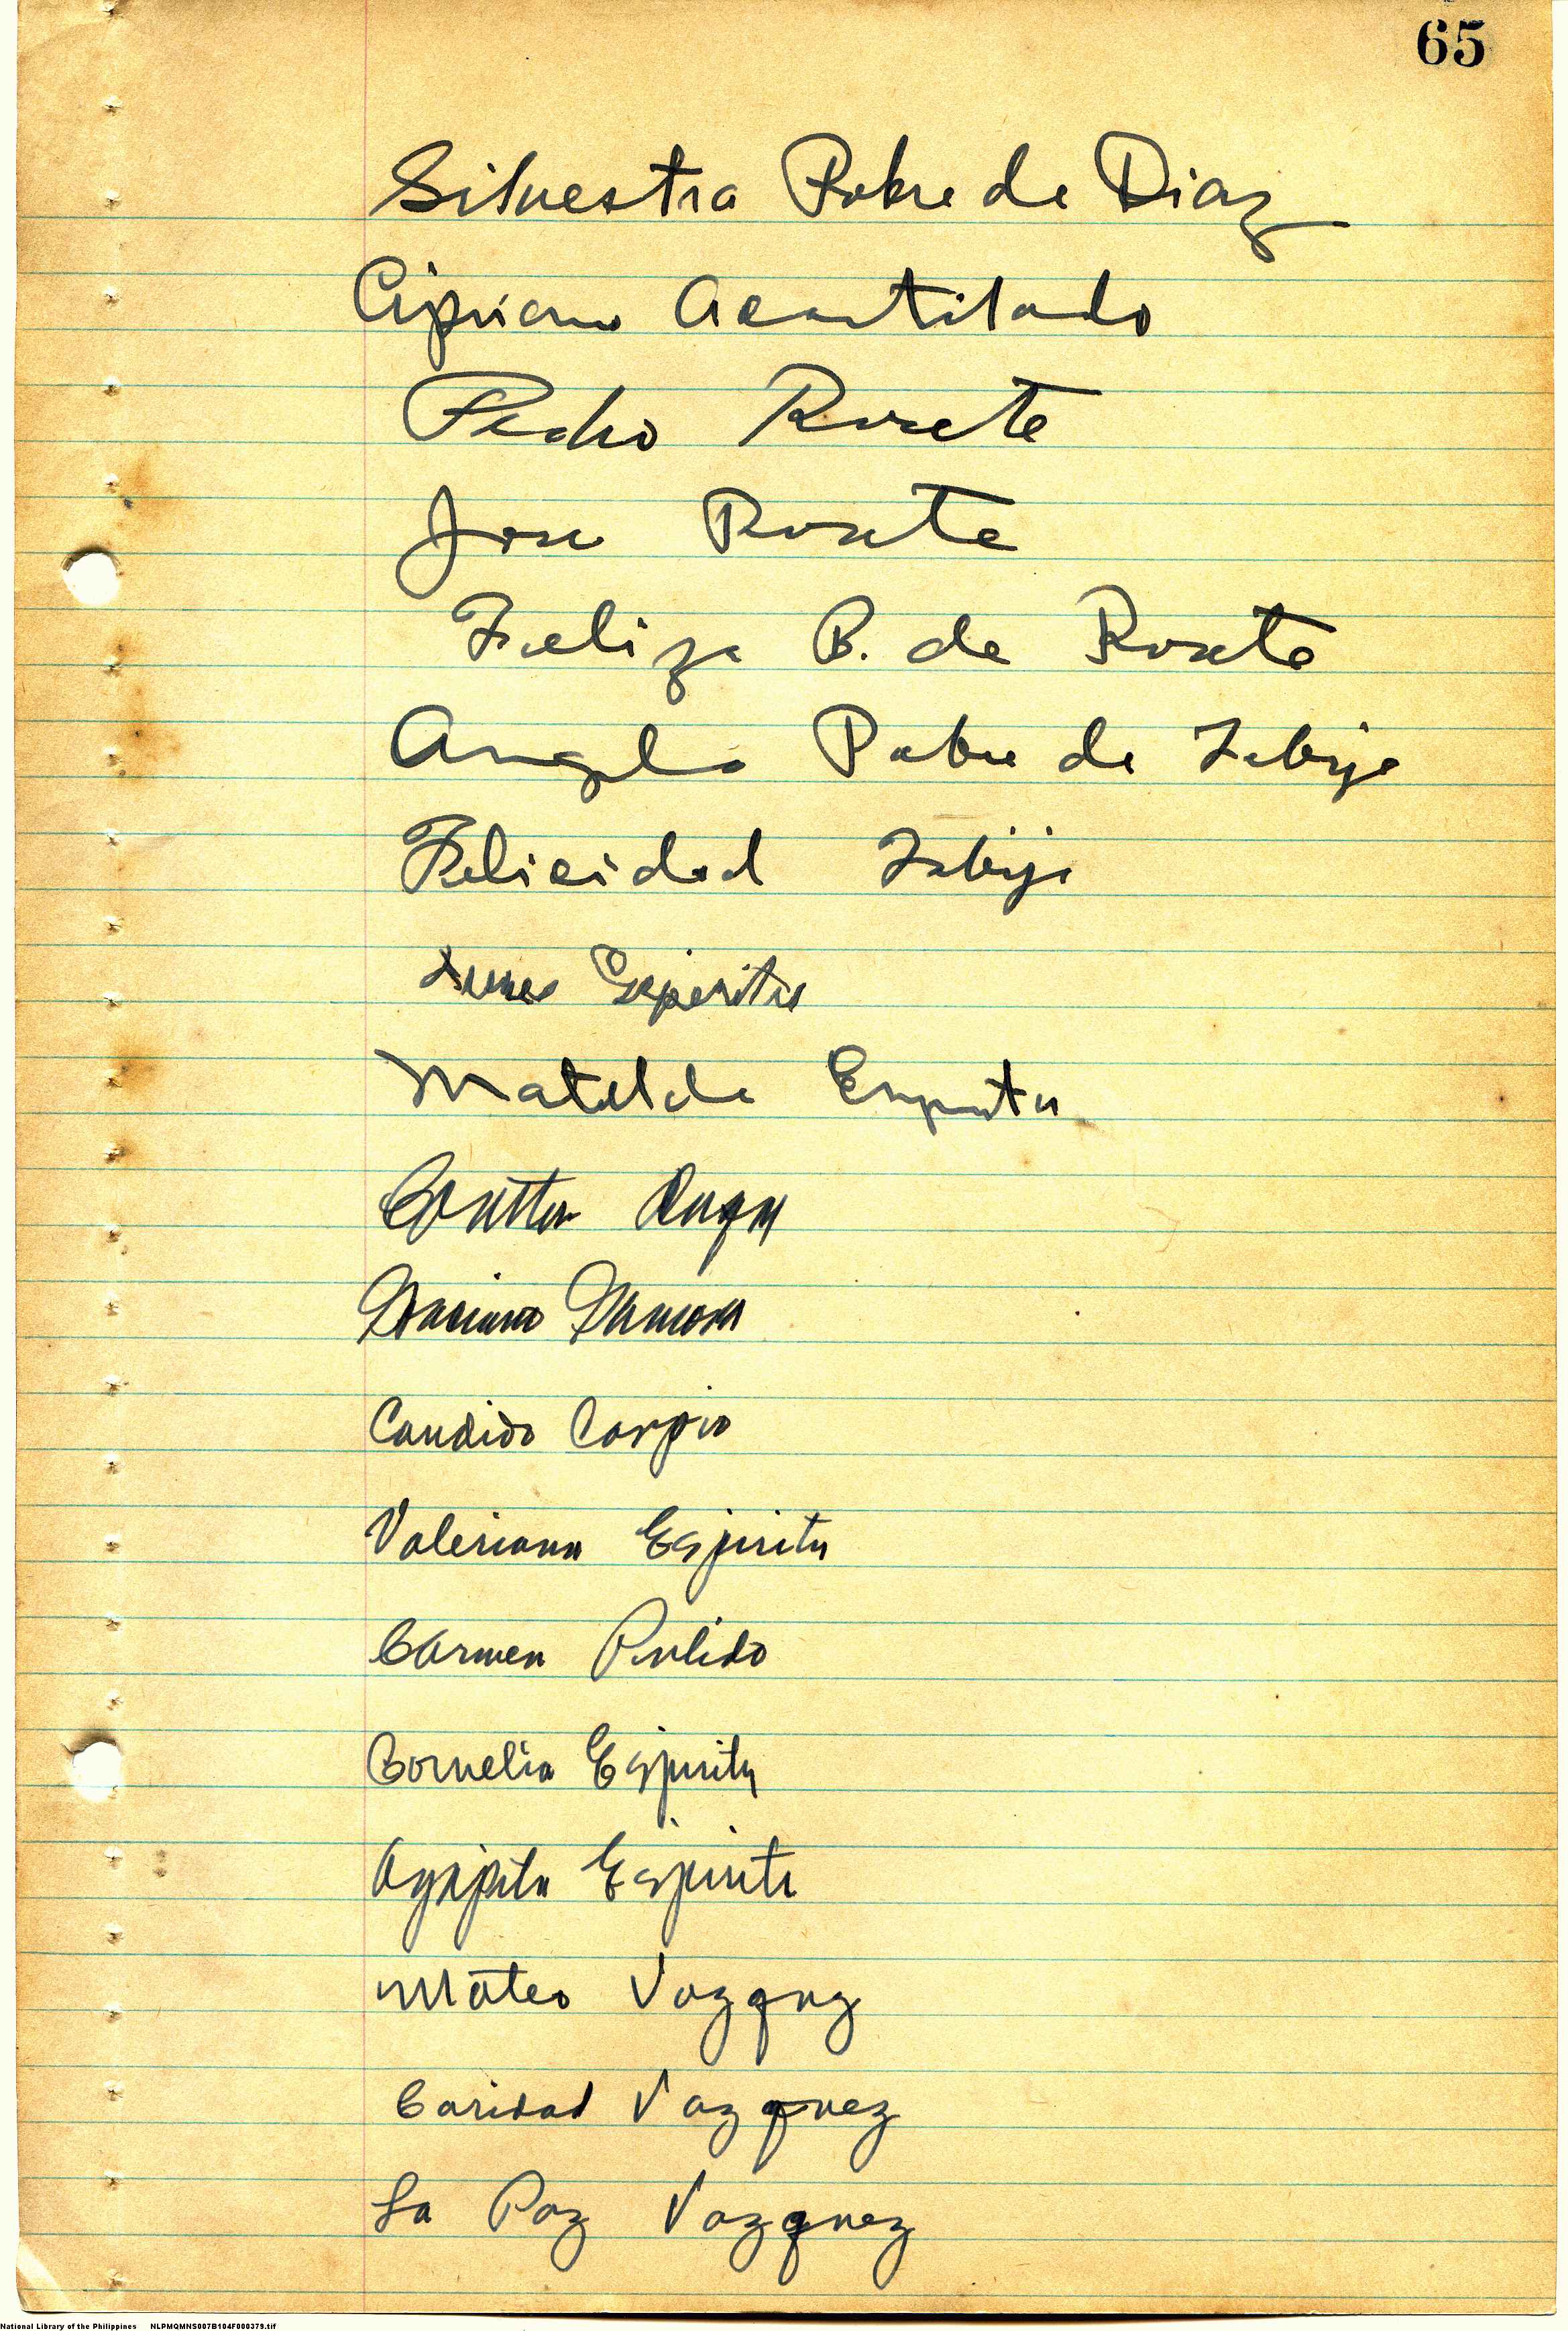 65
Silvestra Pobre de Diaz
Cipriano Acantilado
Pedro Rosete
Jose Rosete
Feliza B. de Rosete
Angela Pobre de Tabije
Felicidad Tabije
Espiritu
Matilde Espiritu
Candido Carpio
Valeriana Espiritu
Carmen Pulido
Cornelia Espiritu
Agapita Espiritu
Mateo Vazquez
Caridad Vazquez
La Paz Vazquez
National Library of the Philippines NLPMQMNS007B104F000379.tif